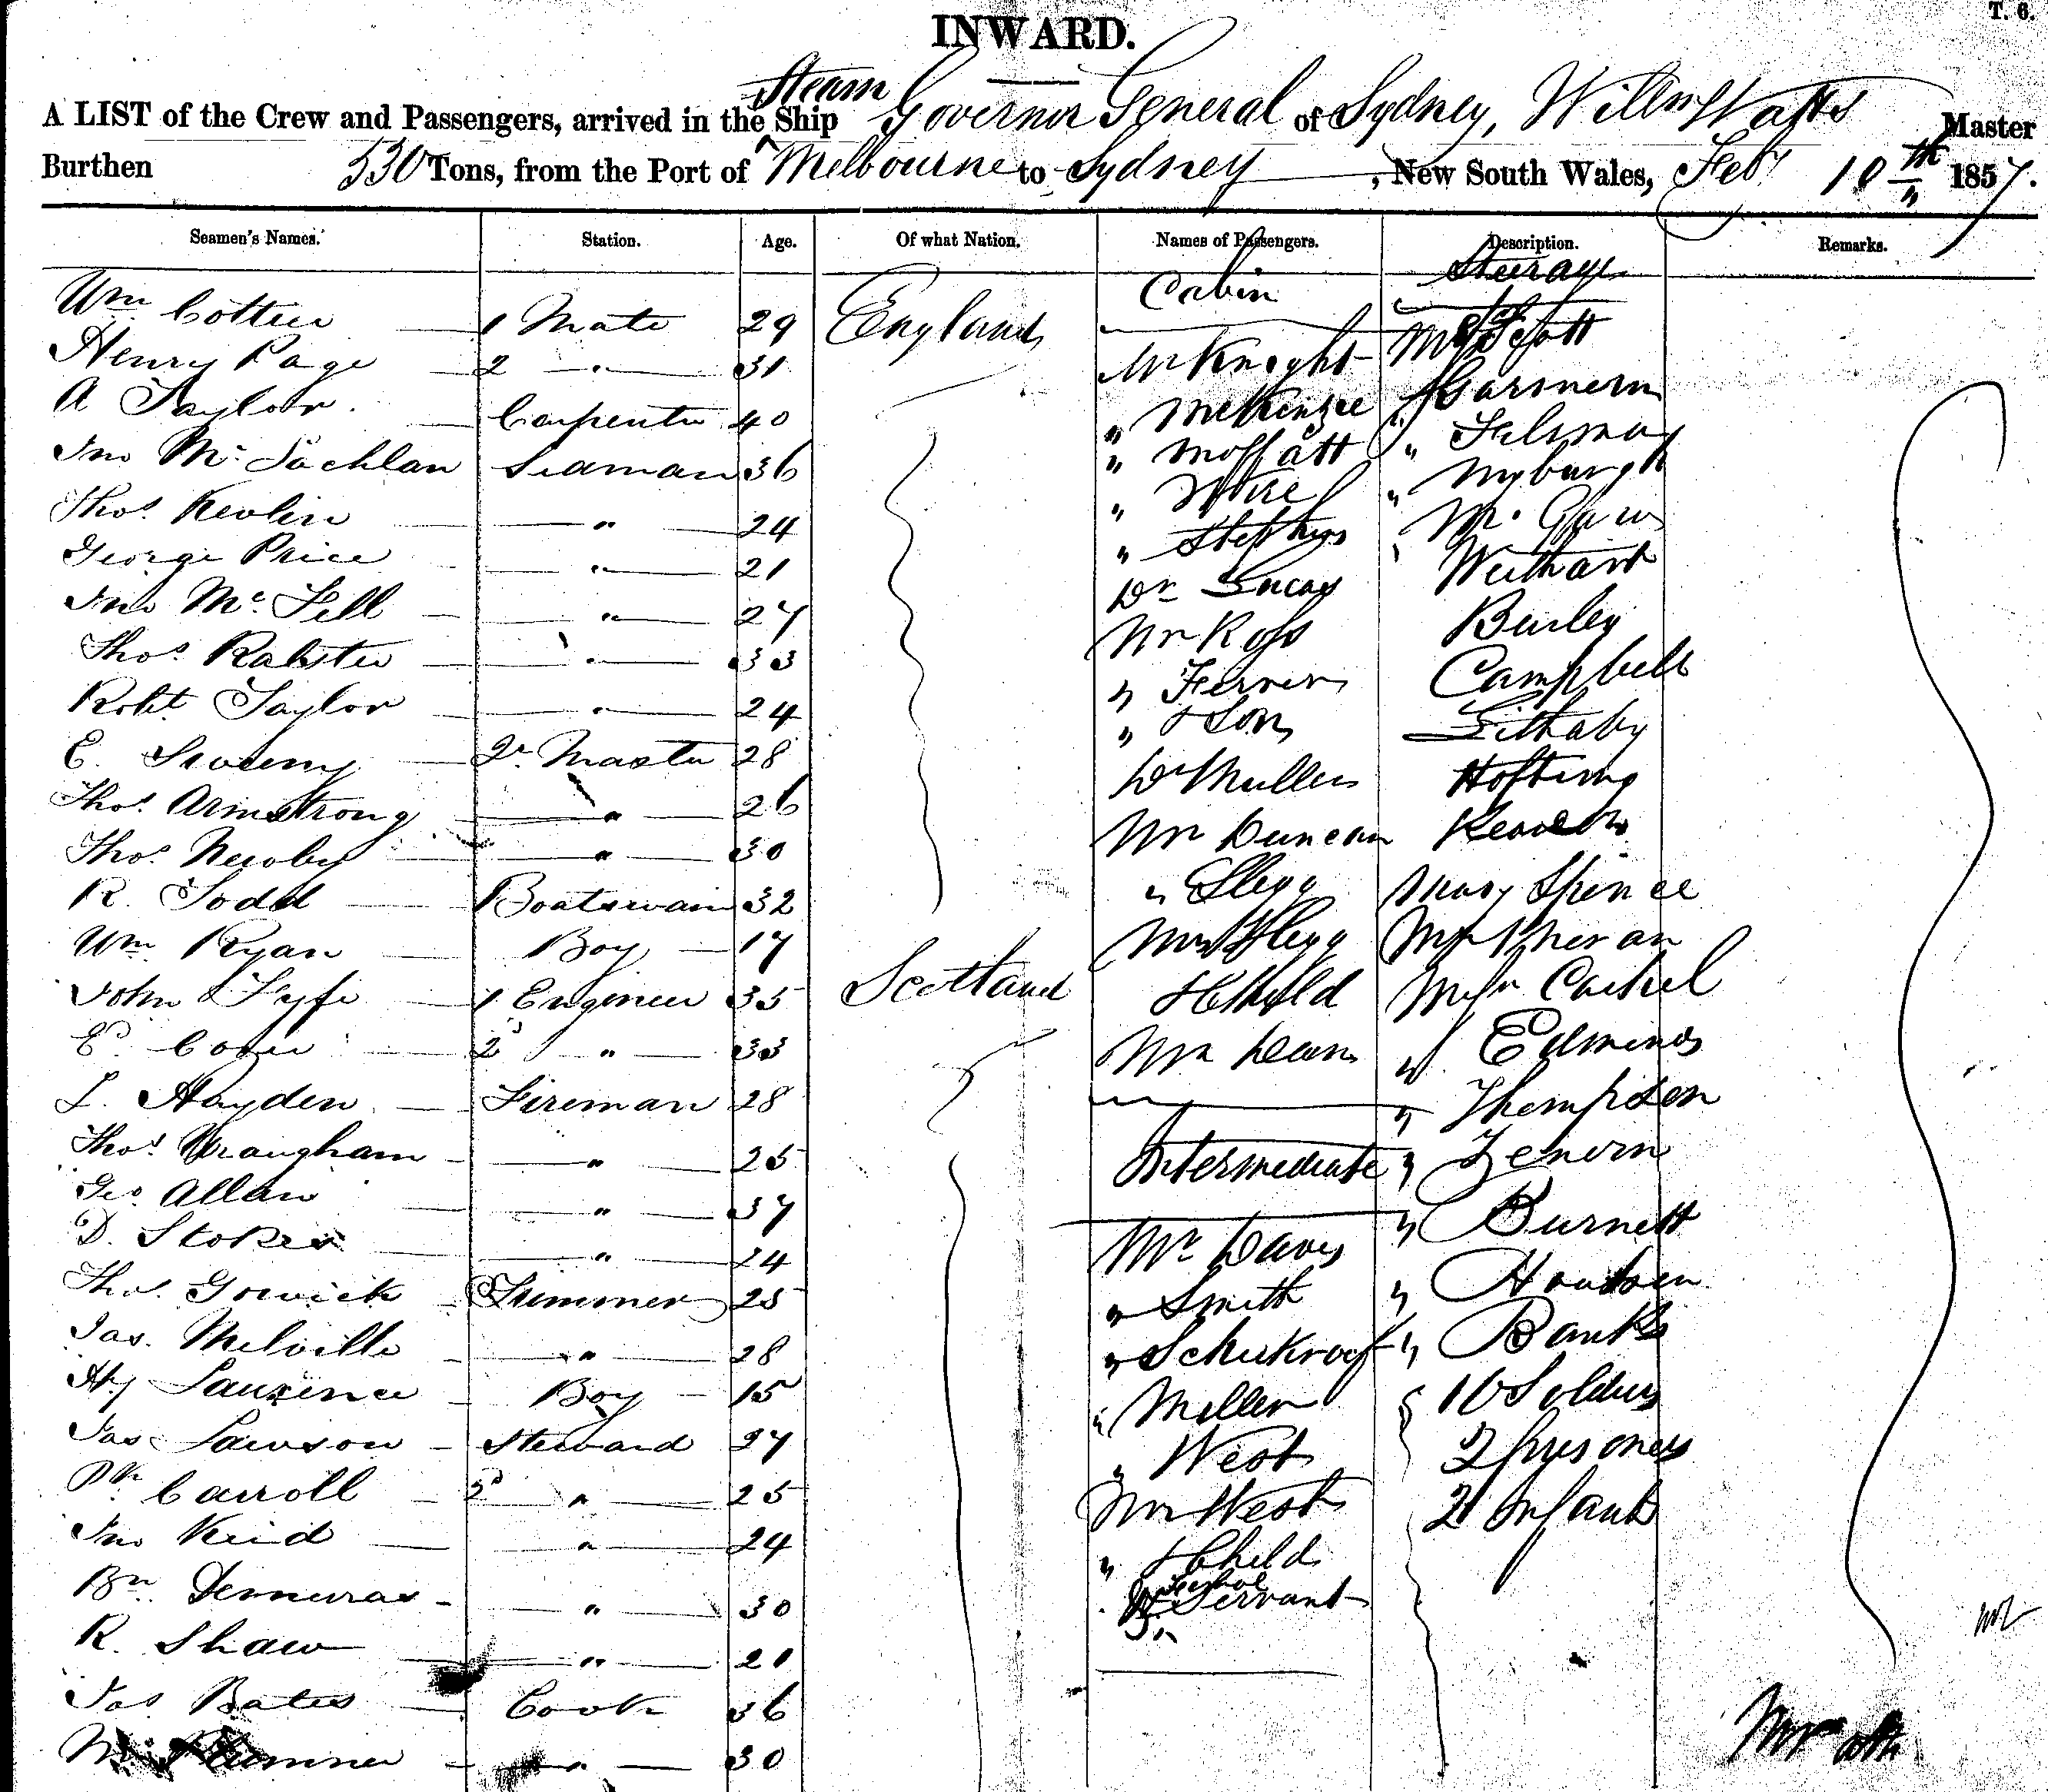 T. 6.
INWARD.
A LIST of the Crew and Passengers, arrived in the Steam Ship Governor General of Sydney, Willm Watts Master
Burthen 530 Tons, from the Port of Melbourne to Sydney, New South Wales, Feby 10th 1857.
Seamen's Names. Station. Age. Of what Nation. Names of Passengers. Description. Remarks.
Wm Cottier 1 Mate 29 England
Henry Page 2 " 31
A Taylor. Carpenter 40
Jno Mc Lachlan Seaman 36
Thos. Kevlin " 24
George Price " 21
Jno Mc. Fell " 27
Thos. Ralster " 33
Robt. Taylor " 24
E. Sweeny Qr Master 28
Thos. Armstrong " 26
Thos. Newby " 30
R. Todd Boatswain 32
Wm Ryan Boy 17
John Fyfe 1 Engineer 35 Scotland
2d " 33
L. Hayden Fireman 28
Thos. Wrangham " 25
Geo Allan " 37
D. Stokes " 24
Thos. Trimmer 25
Jas. Melville " 28
Hy Laurence Boy 15
Jas Lawson Steward 27
Pk Carroll 2d " 25
Jno Reid " 24
Bn. " 30
R. Shaw " 21
Jas Bates Cook 36
" 30
Cabin
Mr Knight
" McKenzie
" Moffatt
" Wise
" Stephens
Dr Lucas
Mr Ross
" Ferrers
" & Son
Dr Muller
Mr Duncan
" Clegg
Mrs Clegg
& Child
Mrs Dean
Intermediate
Mr Davis
" Smith
" Schukraft
" Miller
" West
Mrs West
" & Child
& Servant
Steerage
Scott
" Felsman
" Myburgh
" Mc Gaw
Burley
Campbell
Mary Spence
" Edmunds
" Thompson
" Burnett
" Banks
10 Soldiers
2 prisoners
2 Infants